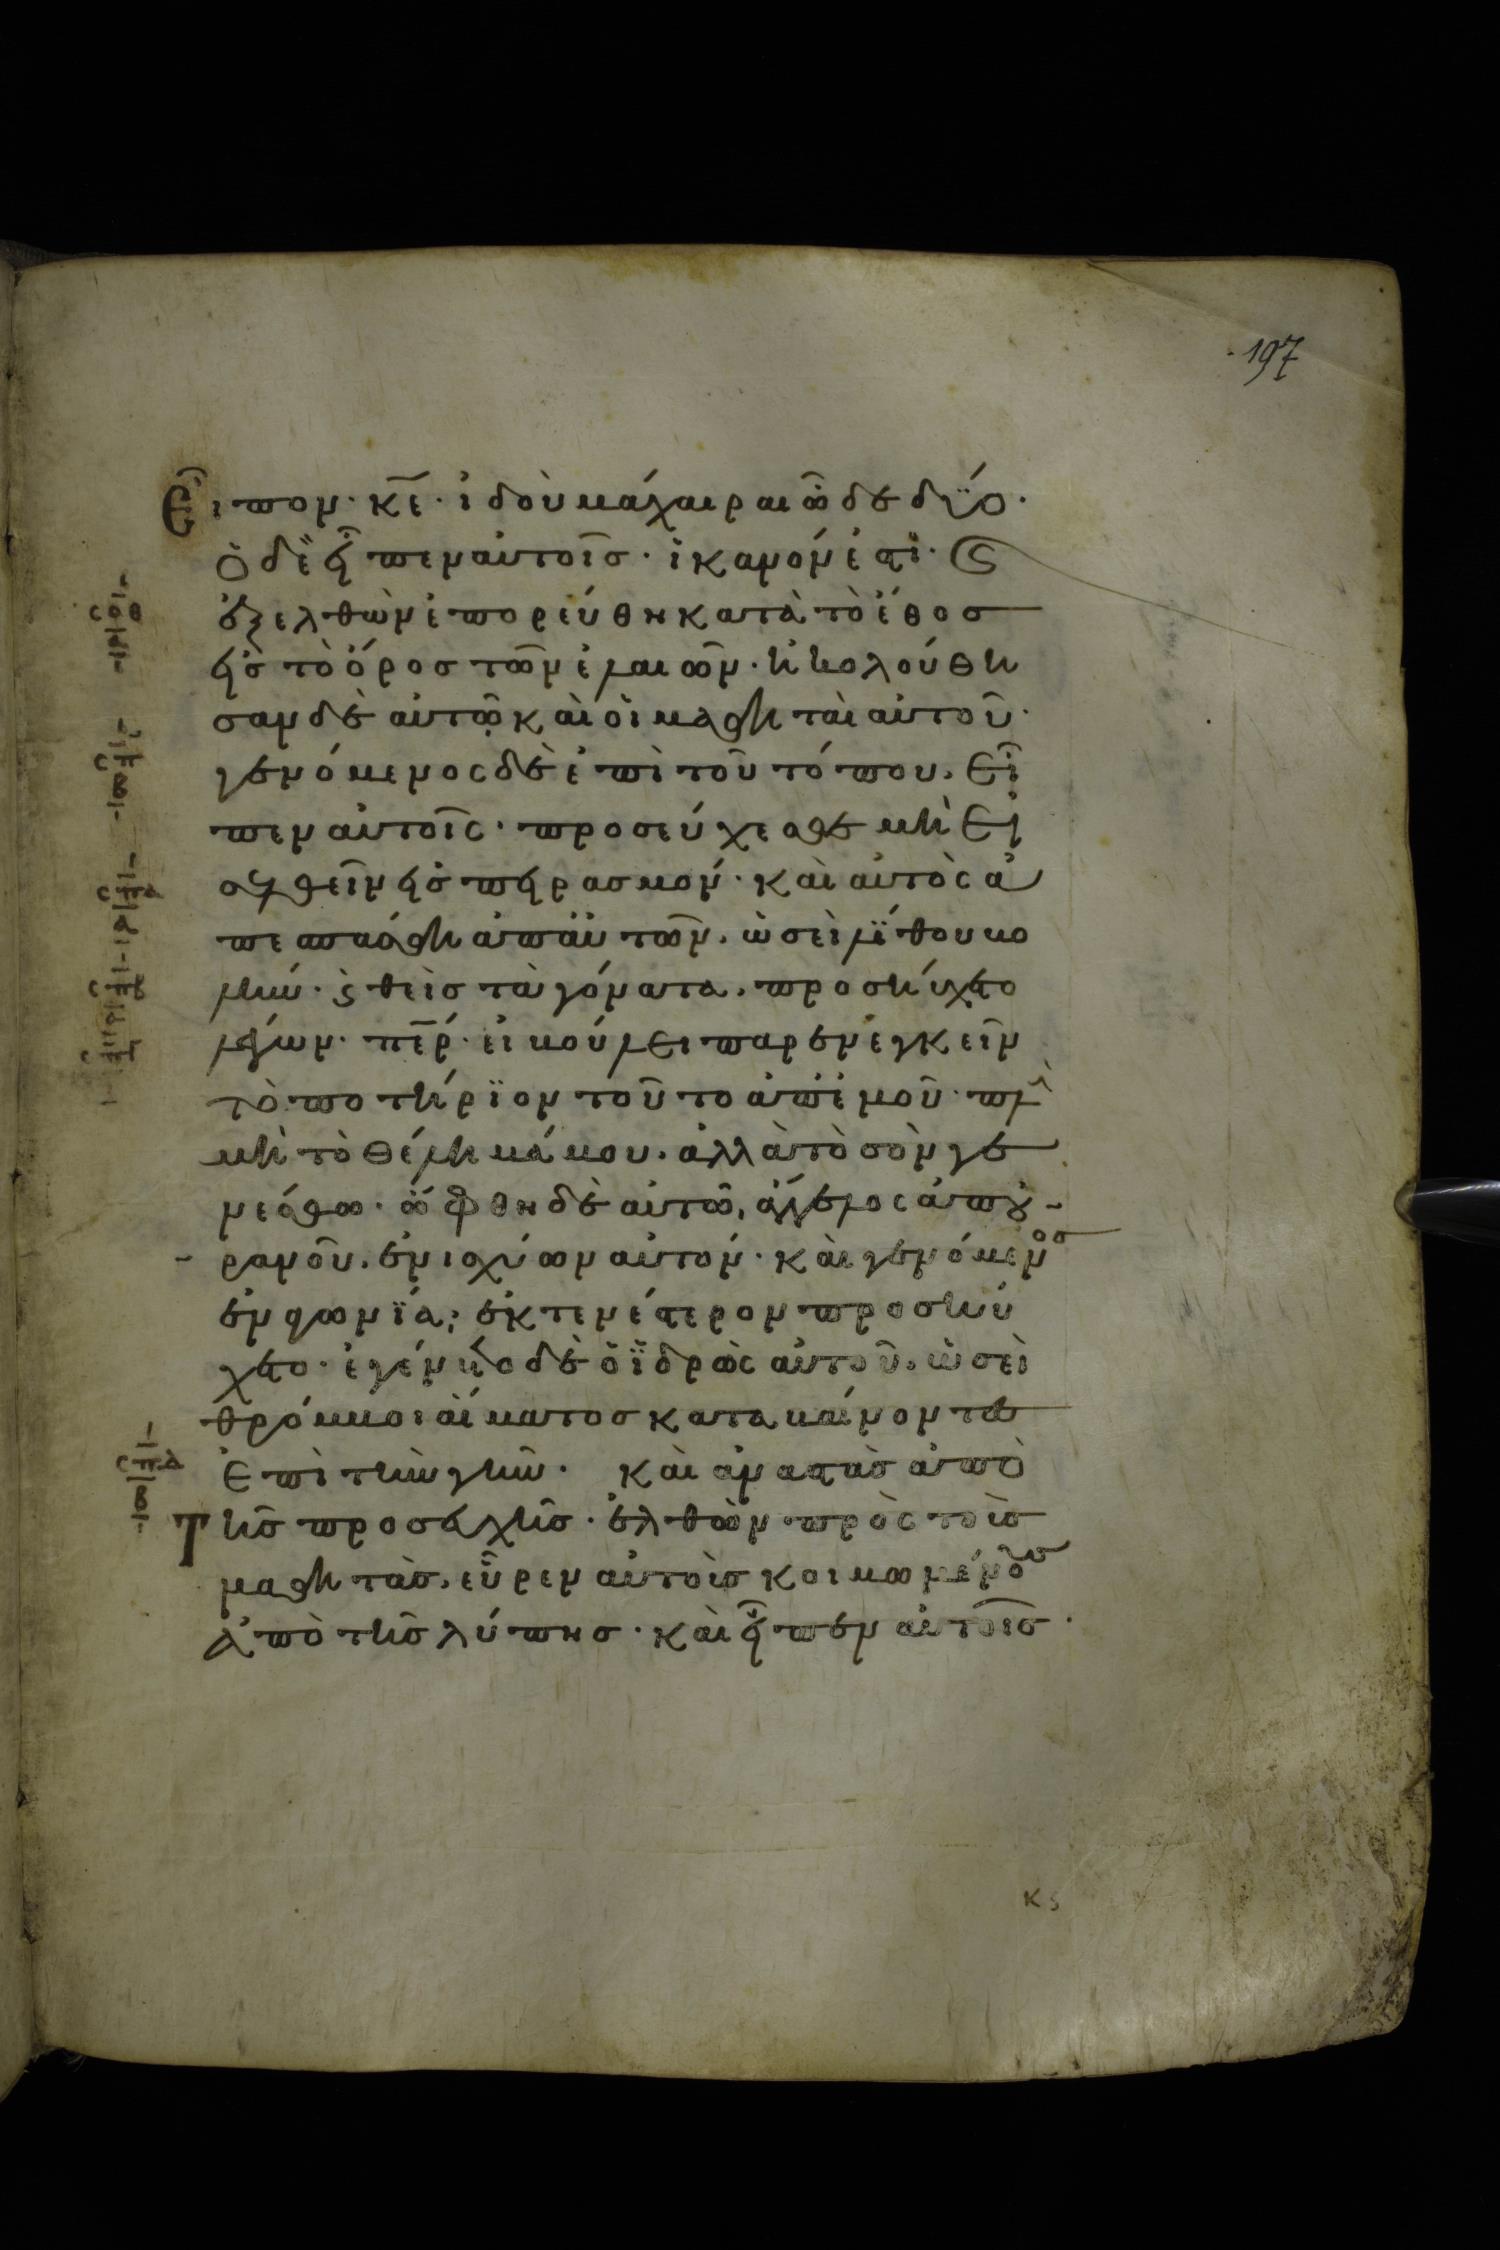 197
Εἶπον· κε̅· ἰδοὺ μάχαιραι ὧδε δύο·
ὁ δὲ εἶπεν αὐτοῖσ· ἱκανόν ἐστι· ϛ
ἐξελθὼν ἐπορεύθη κατὰ τὸ ἔθοσ
εἰσ τὸ ὄροσ τῶν ἐλαιῶν· ἠκολούθη
σαν δὲ αὐτῷ καὶ οἱ μαθηταὶ αὐτοῦ·
γενόμενος δὲ ἐπὶ τοῦ τόπου, εἶ
πεν αὐτοῖς· προσεύχεσθε μὴ εἰ
σελθεῖν εἰσ πειρασμόν· καὶ αὐτὸς ἀ
πεσπάσθη ἀπ' αὐτῶν, ὡσεὶ λίθου βο
λήν· ϛ θεὶσ τὰ γόνατα, προσηύχετο
λέγων· πε̅ρ· εἰ βούλει παρενεγκεῖν
τὸ ποτήριον τοῦτο ἀπ' ἐμοῦ· πλὴν
μὴ τὸ θέλημά μου, ἀλλὰ τὸ σὸν γε
νέσθω· ὤφθη δὲ αὐτῷ, ἄγγελος ἀπ' οὐ-
ρανοῦ, ἐνισχύων αὐτόν· καὶ γενόμενοσ
ἐν ἀγωνίᾳ, ἐκτενέστερον προσηύ
χετο· ἐγένετο δὲ ὁ ἱδρὼς αὐτοῦ, ὡσεὶ
θρόμβοι αἵματοσ καταβαίνοντεσ
ἐπὶ τὴν γῆν· καὶ ἀναστὰσ ἀπὸ
τῆσ προσευχῆσ· ἐλθὼν πρὸς τοὺσ
μαθητὰσ, εὗρεν αὐτοὺσ κοιμωμένουσ
ἀπὸ τῆσ λύπησ· καὶ εἶπεν αὐτοῖσ·
κϛ